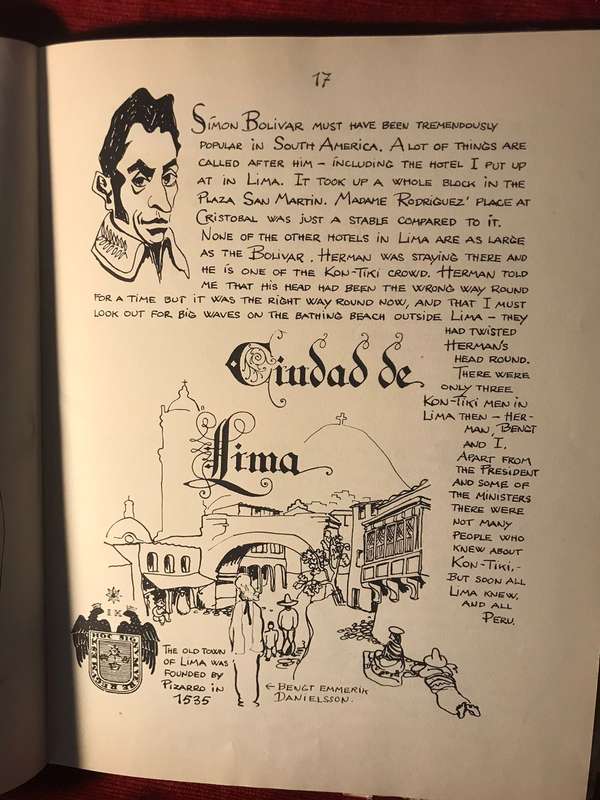 17
Simon Bolivar must have been tremendously
popular in South America. A lot of things are
called after him – including the hotel I put up
at in Lima. It took up a whole block in the
Plaza San Martin. Madame Rodriguez' place at
Cristobal was just a stable compared to it.
None of the other hotels in Lima are as large
as the Bolivar. Herman was staying there and
he is one of the Kon-Tiki crowd. Herman told
me that his head had been the wrong way round
for a time but it was the right way round now, and that I must
look out for big waves on the bathing beach outside Lima – they
had twisted
Herman's
head round.
There were
only three
Kon-Tiki men in
Lima then – Her-
man, Bengt
and I.
Apart from
the President
and some of
the ministers
there were
not many
people who
knew about
Kon-Tiki.-
But soon all
Lima knew,
and all
Peru.
Ciudad de
Lima
I K
HOC SIGNUM
The old town
of Lima was
founded by
Pizarro in
1535
← Bengt Emmerik
Danielsson.